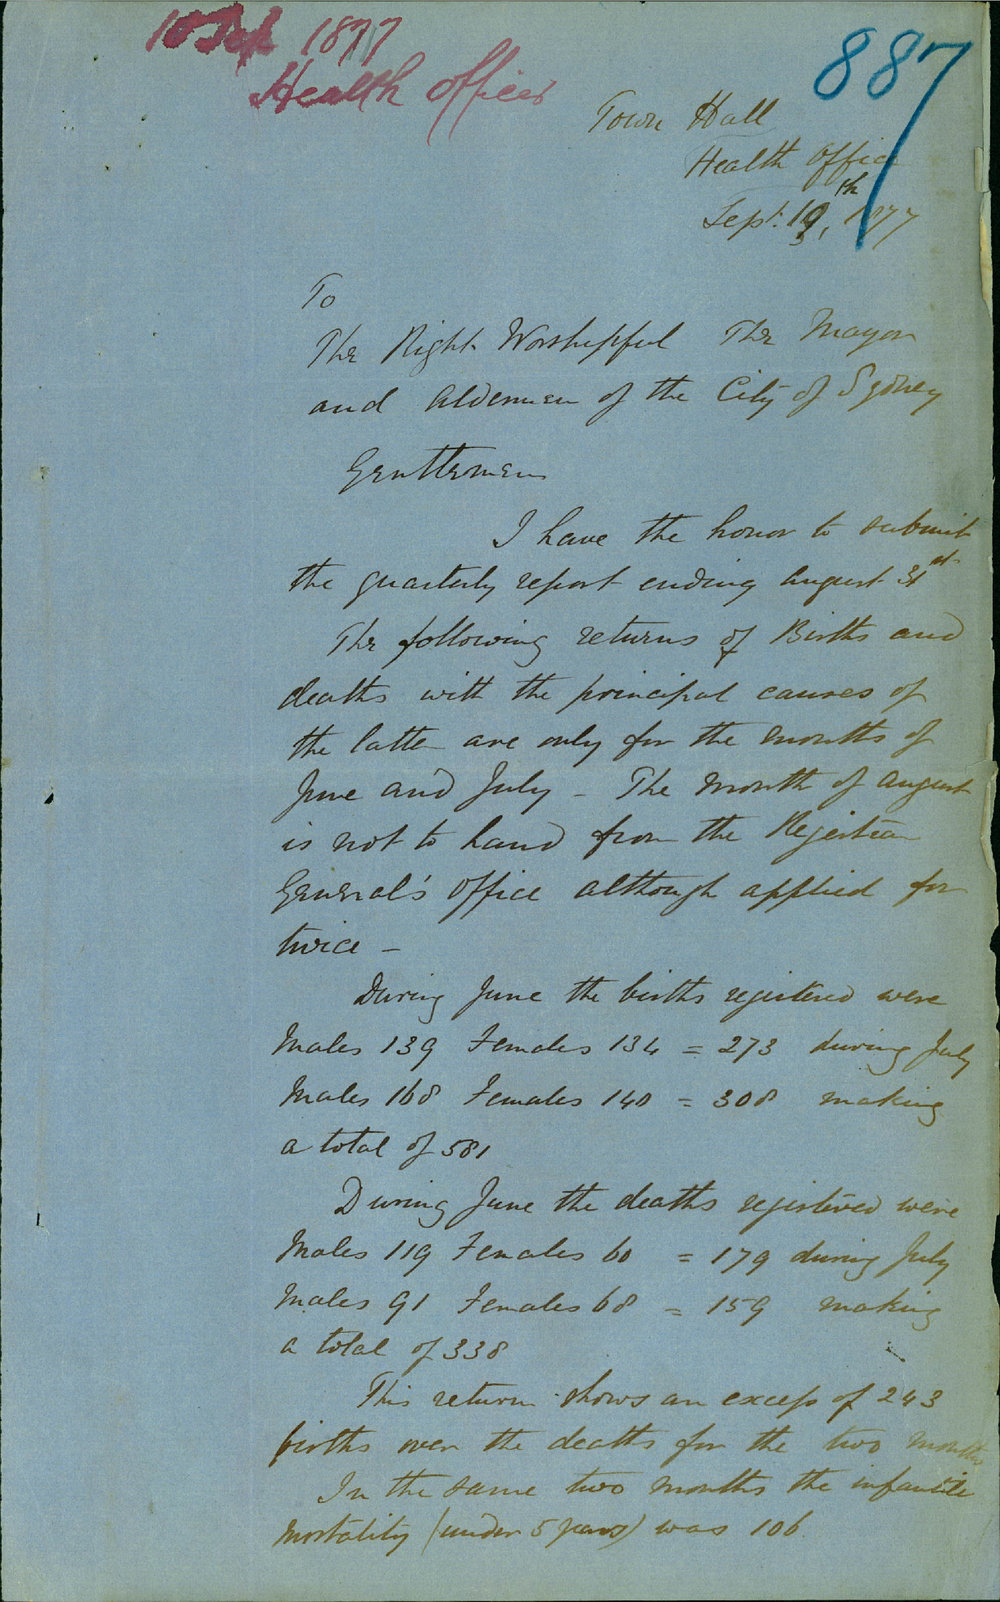 10 Sep 1877
Health Officer
887
Town Hall
Health Office
Sept. 10th, 1877
To
The Right Worshipful The Mayor
and Aldermen of the City of Sydney
Gentlemen
I have the honor to submit
the quarterly report ending August 31st
The following returns of Births and
deaths with the principal causes of
the latter are only for the months of
June and July – The month of August
is not to hand from the Registrar
General's Office although applied for
twice –
During June the births registered were
Males 139 Females 134 = 273 during July
Males 168 Females 140 = 308 making
a total of 581
During June the deaths registered were
Males 119 Females 60 = 179 during July
Males 91 Females 68 = 159 making
a total of 338
This return shows an excess of 243
births over the deaths for the two months
In the same two months the infantile
mortality (under 5 years) was 106